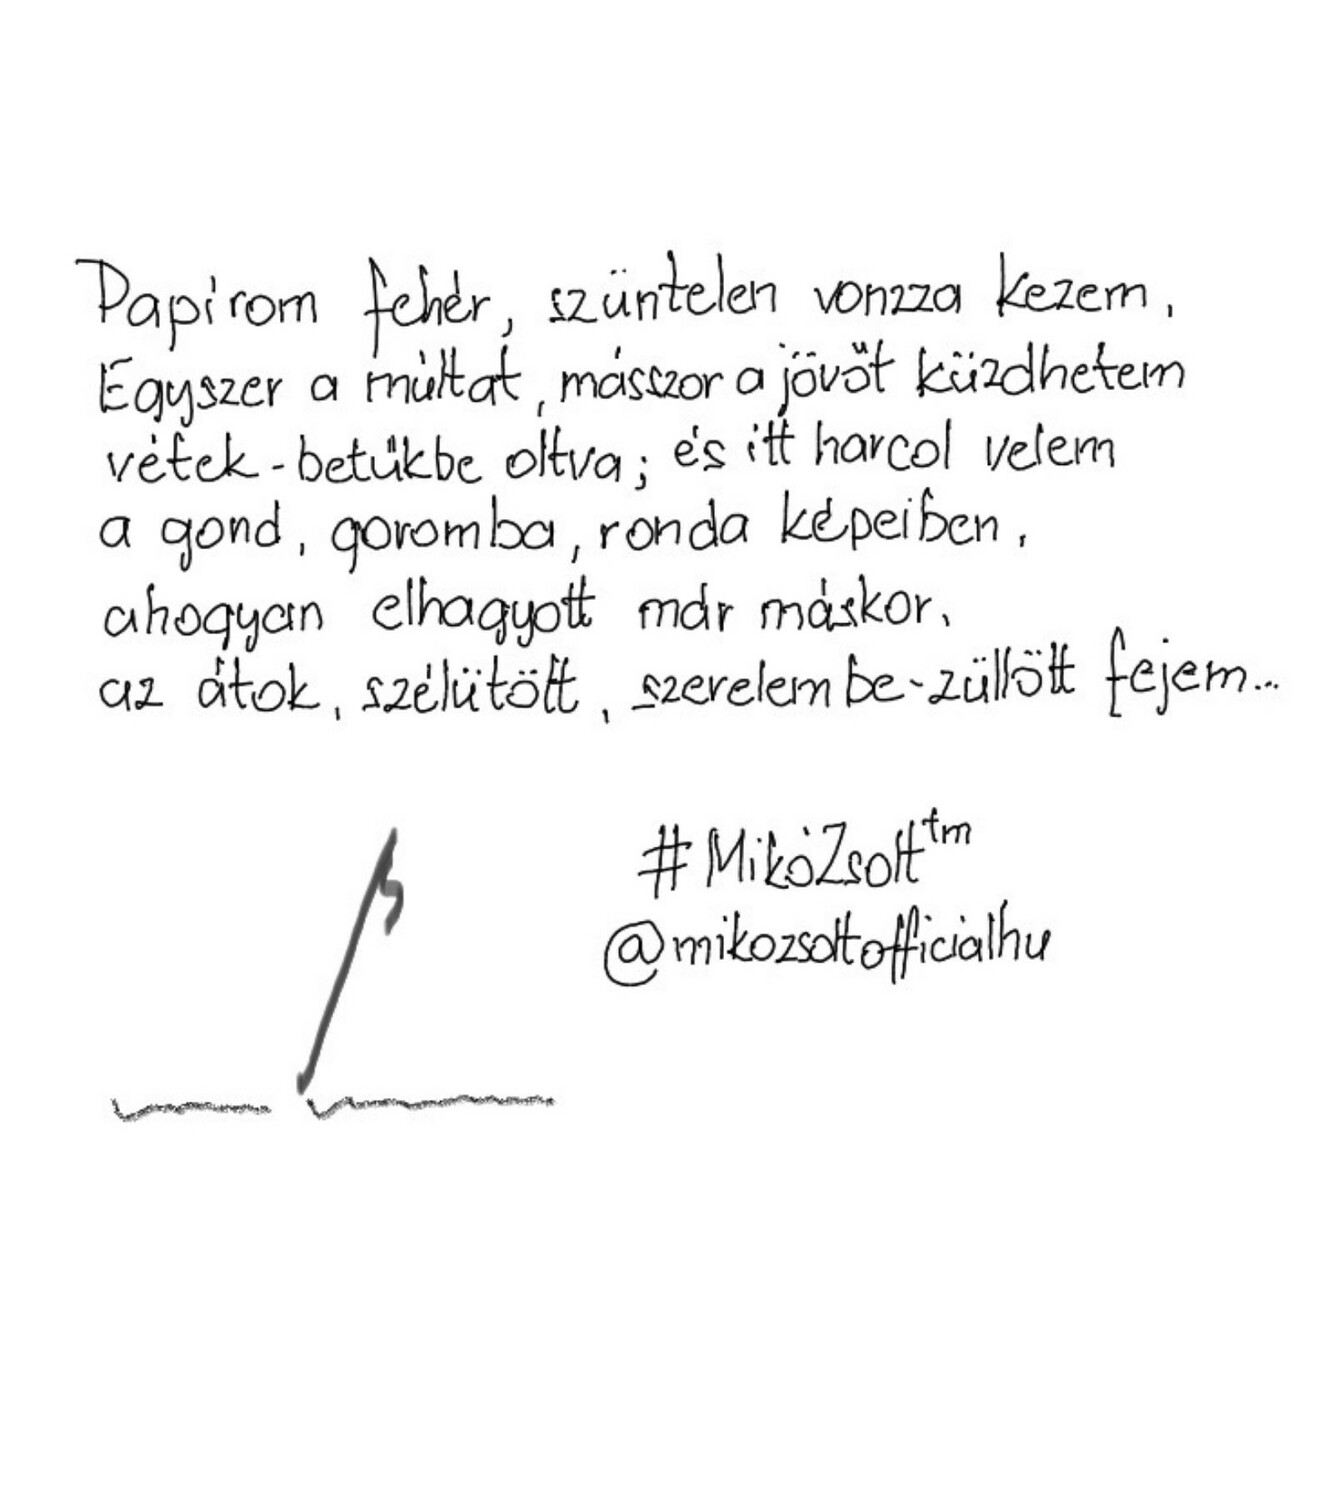 Papírom fehér, szüntelen vonzza kezem,
Egyszer a múltat, másszor a jövőt küzdhetem
vétek-betűkbe oltva; és itt harcol velem
a gond, goromba, ronda képeiben,
ahogyan elhagyott már máskor,
az átok, szélütött, szerelembe-züllött fejem...
#MikóZsolt™
@mikozsoltofficialhu